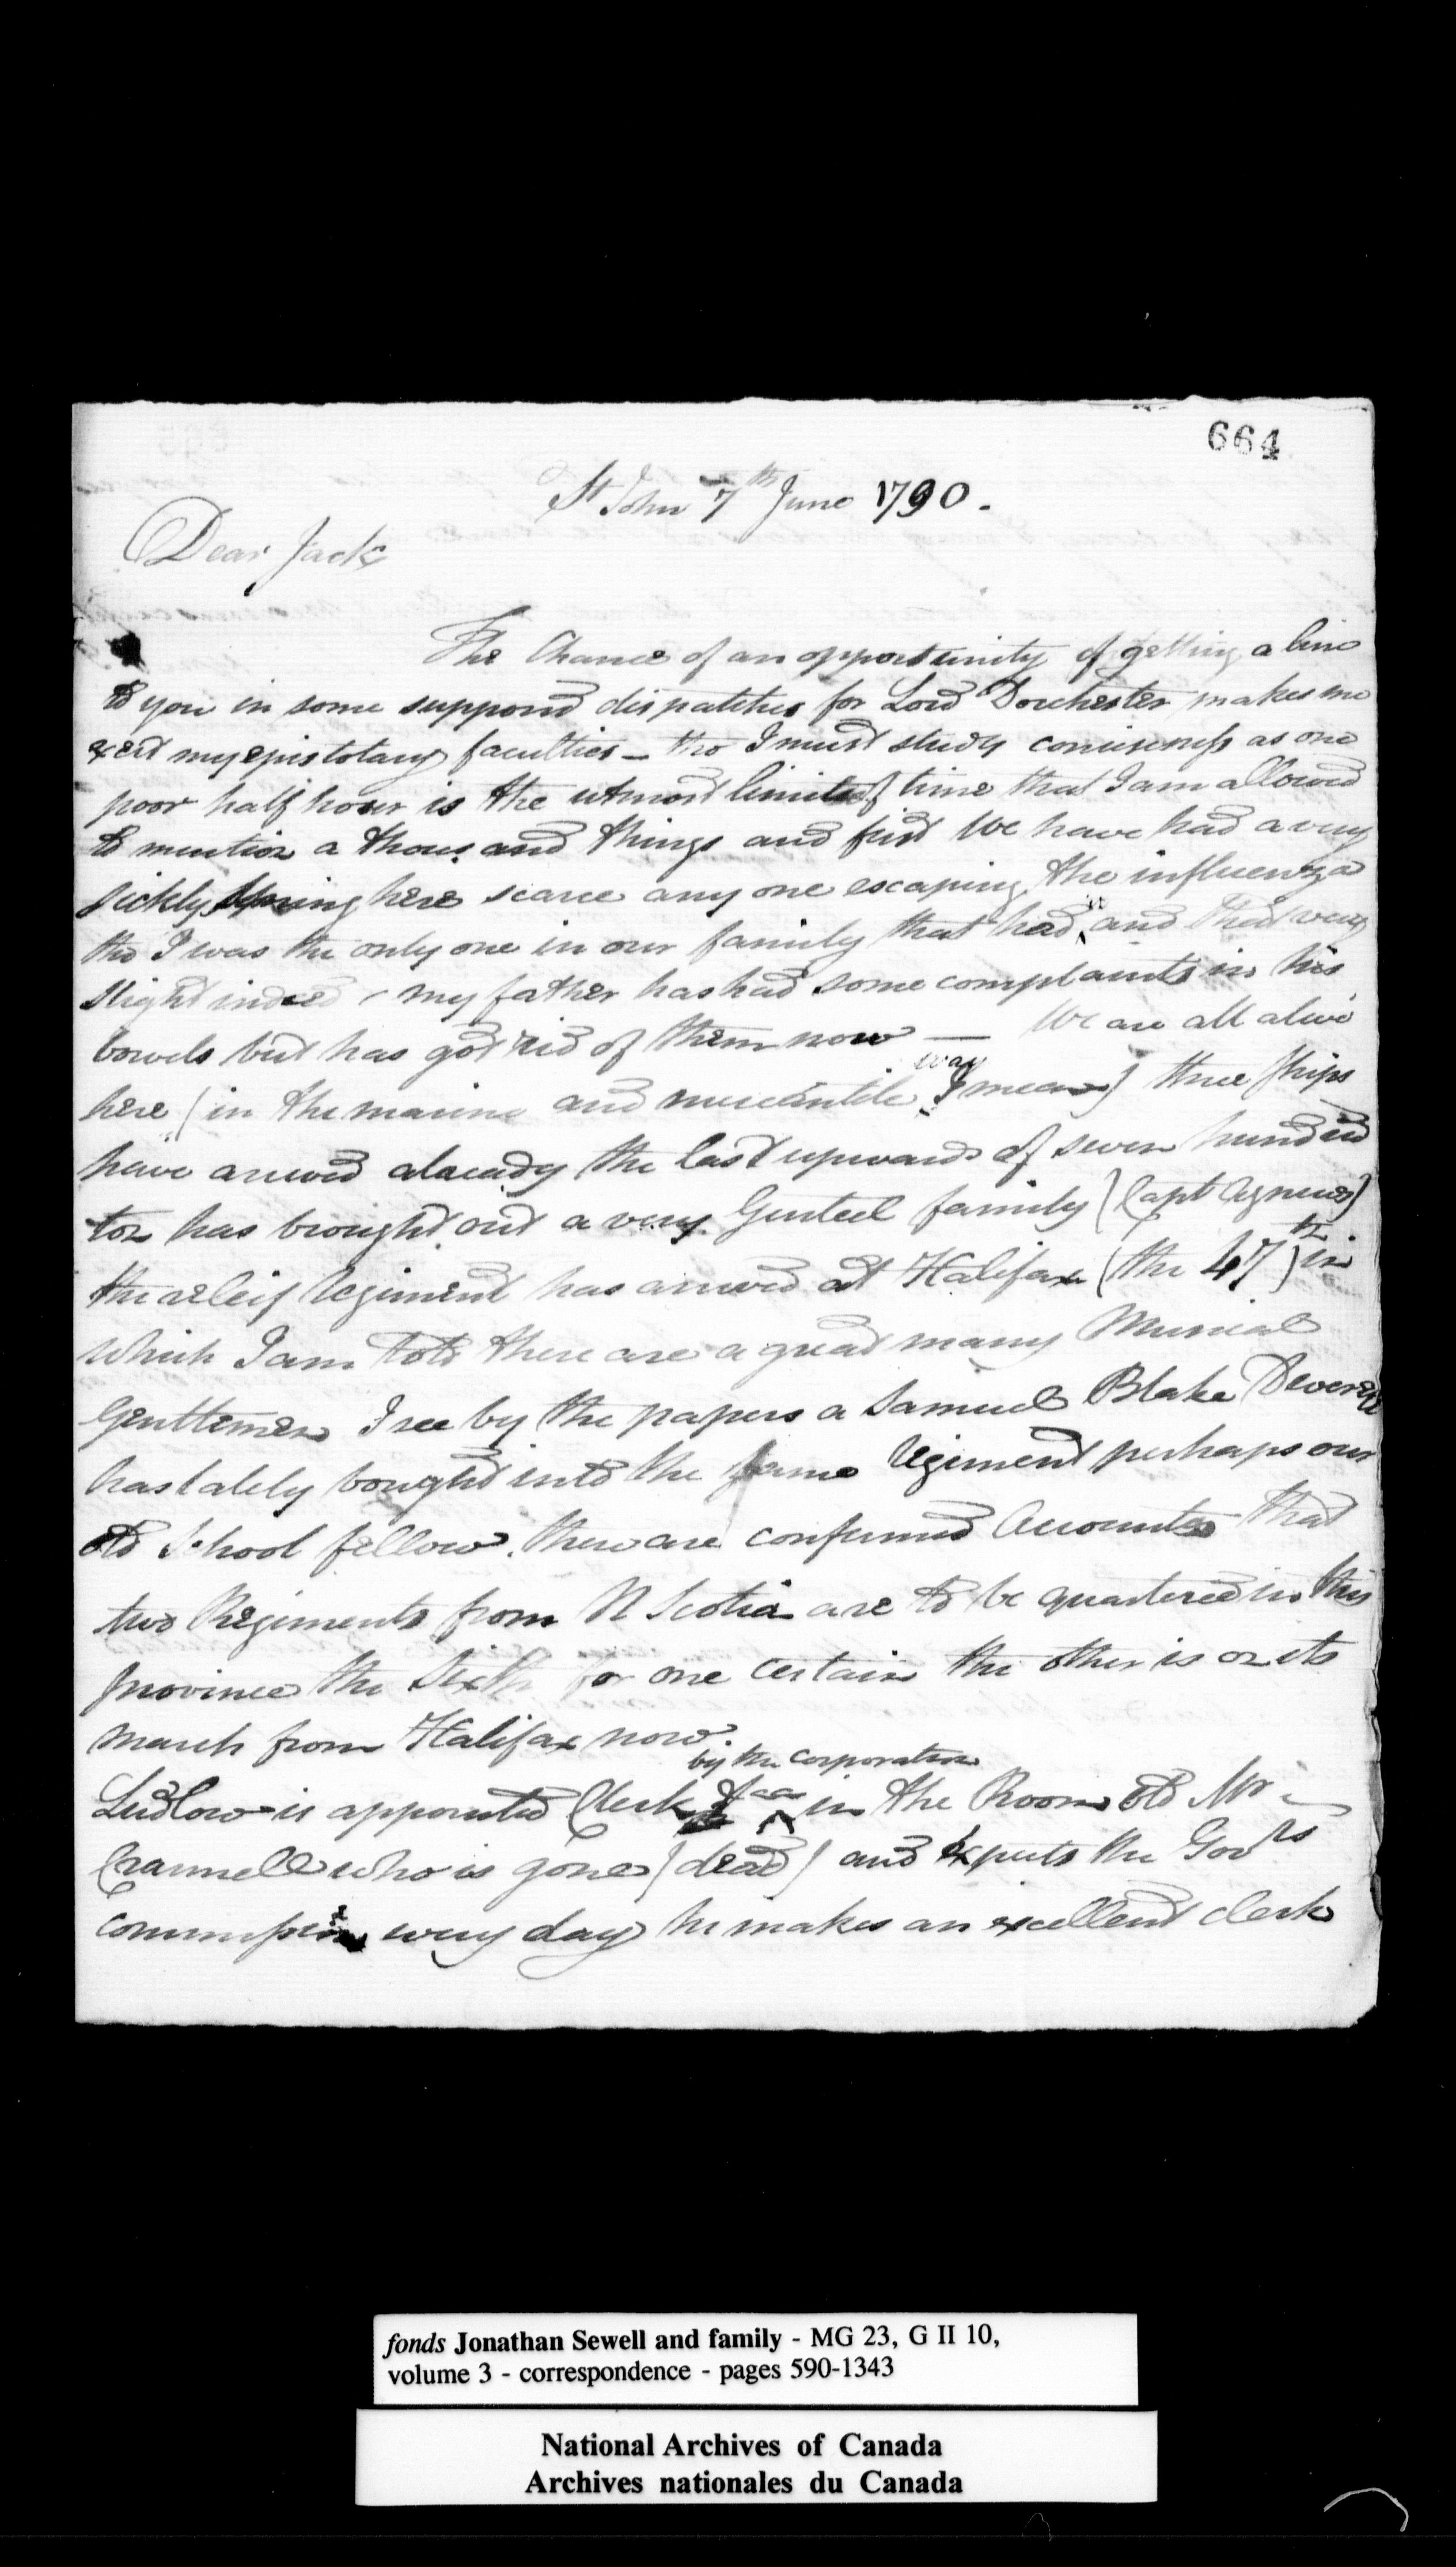 664
St John 7th June 1790.
Dear Jack
The Chance of an opportunity of getting a line
to you in some supposd dispatches for Lord Dorchester makes me
exert my epistolary faculties – tho I must study conciseness as one
poor half hour is the utmost limits of time that I am allowed
to mention a thousand things and first We have had a very
sickly Spring here scarce any one escaping the influenza
tho I was the only one in our family that had it and that very
slight indeed – my father has had some complaints in his
bowels but has got rid of them now — We are all alive
here (in the marine and mercantile way I mean) three ships
have arrived already the last upwards of seven hundred
ton has brought out a very Genteel family (Capt Agnews)
the releif Regiment has arrived at Halifax (the 47th) in
which I am told there are a great many Musical
Gentlemen I see by the papers a Samuel Blake Deverell
has lately bought into the same Regiment perhaps our
old School fellow. there are confirmed Accounts that
two Regiments from N Scotia are to be quartered in this
province the Sixth for one certain the other is on its
march from Halifax now.
Ludlow is appointed Clerk by the Corporation in the Room old Mr
Crannell who is gone (dead) and expects the Govrs
commission every day he makes an excellent clerk
fonds Jonathan Sewell and family - MG 23, G II 10,
volume 3 - correspondence - pages 590-1343
National Archives of Canada
Archives nationales du Canada